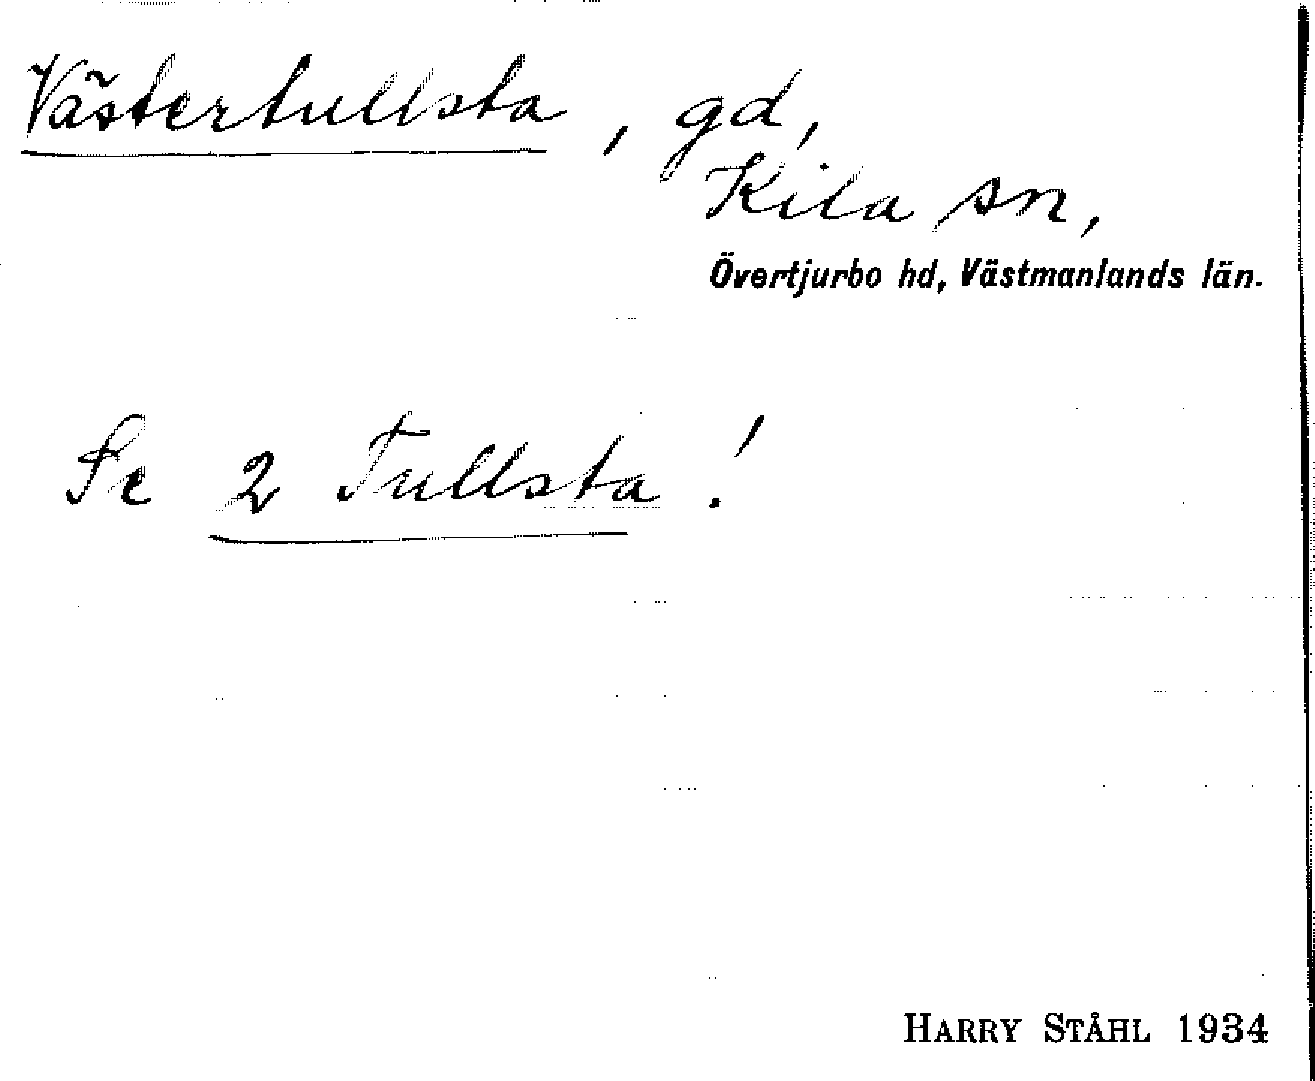 Västertullsta, gd,
Kila sn,
Övertjurbo hd, Västmanlands län.
Se 2 Tullsta!
HARRY STÅHL 1934